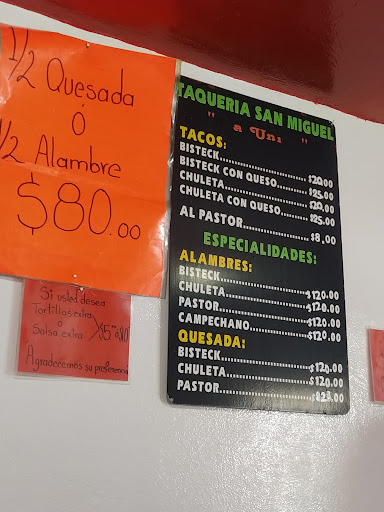 1/2 Quesada
Ó
1/2 Alambre
$80.00
Si usted desea
Tortillas extra
o
Salsa extra
Agradecemos su preferencia
TAQUERIA SAN MIGUEL
" a Uni "
TACOS:
BISTECK....................$20.00
BISTECK CON QUESO....................$25.00
CHULETA....................$20.00
CHULETA CON QUESO....................$25.00
AL PASTOR....................$8.00
ESPECIALIDADES:
ALAMBRES:
BISTECK....................$120.00
CHULETA....................$120.00
PASTOR....................$120.00
CAMPECHANO....................$120.00
QUESADA:
BISTECK....................$120.00
CHULETA....................$120.00
PASTOR....................